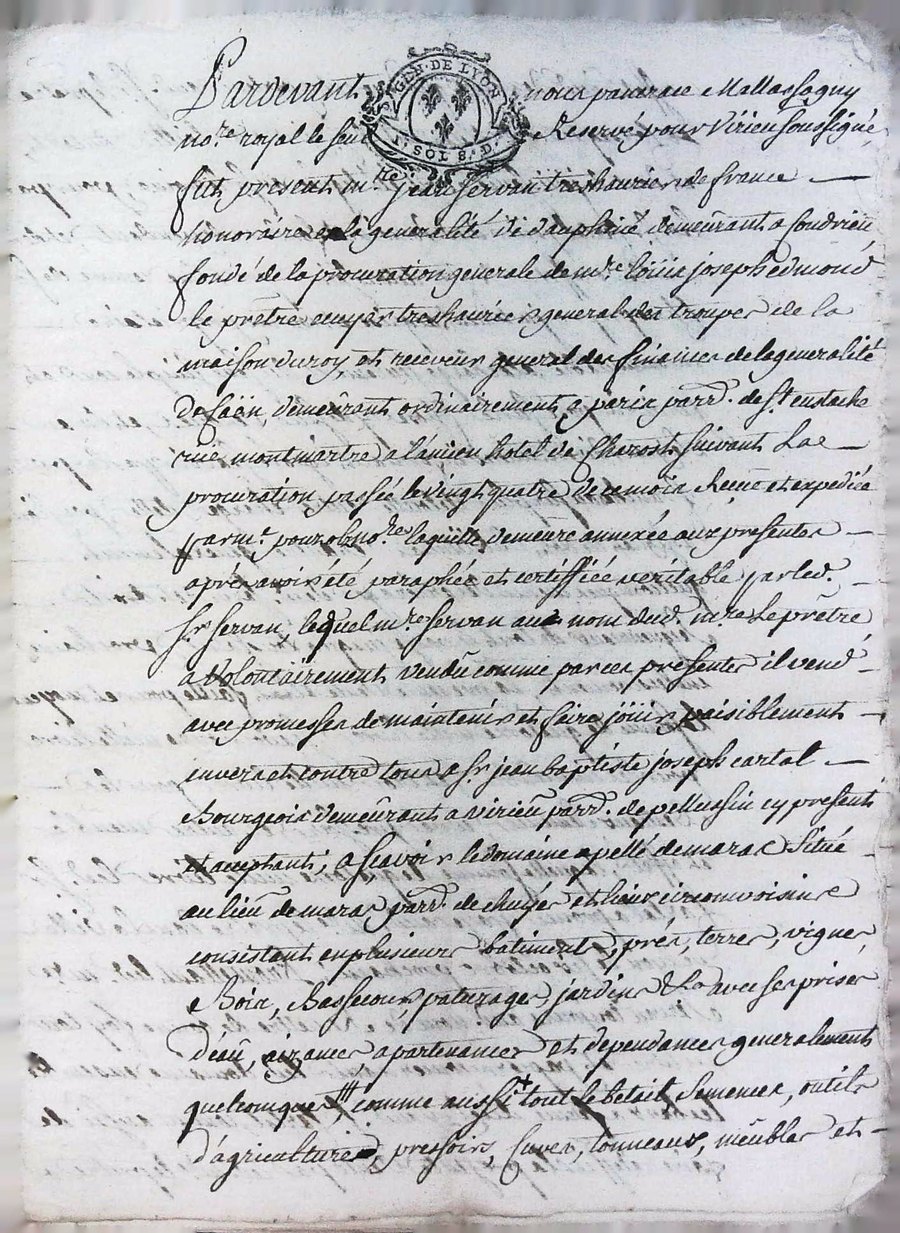 GEN · DE LYON
1 · SOL 8 · D ·
Pardevant nous pancrace Mallassagny
no.re royal le seul Reservé pour Virieu soussigné,
fut present m.re jean servan treshaurier de france
honoraire en la generalité de dauphiné demeurant a Condrieu
fondé de la procuration generale de m.re loüis joseph edmond
le prêtre ecuyer treshaurier general des trouppes de la
maison du roy, et receveur general des finances de la generalité
de Caën, demeurant ordinairement a paris parr. de St. eustache
rüe montmartre a l'ancien hotel de Charost, suivant La
procuration passée le vingt quatre de ce mois Reçue et expediée
par m.e no.re laquelle demeure annexée aux presentes
après avoir été paraphée et certiffiée veritable par led.
Sr. servan, lequel m.re servan au nom dud. m.re Le prêtre
a Volontairement vendu comme par ces presentes il vend
avec promesses de maintenir et faire joüir paisiblement
envers et contre tous a Sr. jean baptiste joseph cartal
Bourgeois demeurant a virieu parr. de pellussin cy present
et acceptant, a scavoir le domaine apellé de maras Situé
au lieu de maras parr. de chuyer et lieux circonvoisins
consistant en plusieurs bâtiments, prés, terres, vignes,
Bois, Bassecour, paturages, jardins &c avec ses prises
d'eau, aizances, apartenances et dependances generalement
quelconques, comme aussi tout le betail Semences, outils
d'agriculture, pressoirs, Cuves, tonneaux, meubles et